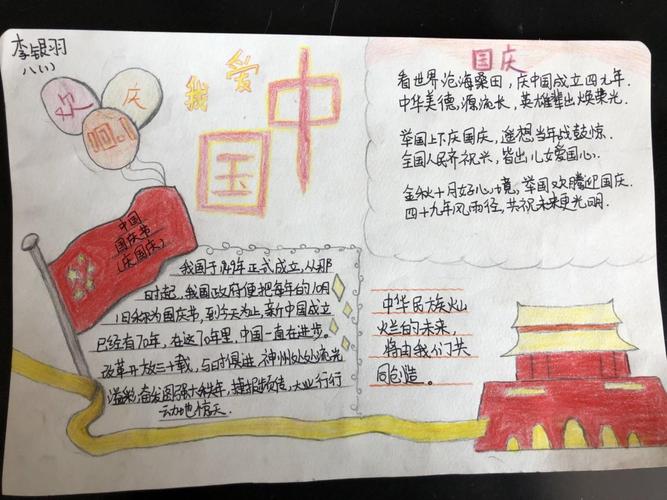 李银羽
八(1)
欢
庆
我爱
中
国
中国
国庆节
(庆国庆)
我国于1949年正式成立,从那
时起,我国政府便把每年的10月
1日称为国庆节,到今天为止,新中国成立
已经有70年,在这70年里,中国一直在进步。
改革开放三十载,与时俱进神州处处流光
溢彩,奋发图强十秩年,捷报频传,大业行行
动地惊天.
国庆
看世界沧海桑田,庆中国成立四九年.
中华美德源流长,英雄辈出焕荣光.
举国上下庆国庆,遥想当年战鼓惊.
全国人民齐祝兴,皆出儿女爱国心.
金秋十月好心境,举国欢腾迎国庆.
四十九年风雨径,共祝未来更光明.
中华民族灿
烂的未来,
将由我们共
同创造。